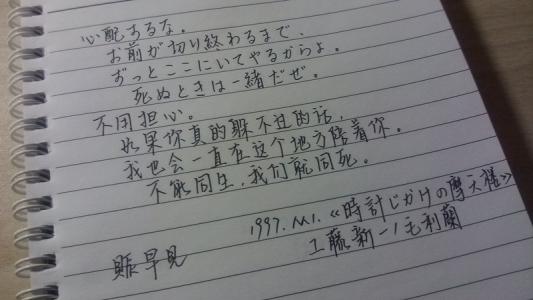 心配するな。
お前が切り終わるまで、
ずっとここにいてやるからよ。
死ぬときは一緒だぜ。
不用担心。
如果你真的躲不过的话,
我也会一直在这个地方陪着你。
不能同生,我们就同死。
1997. M1.《時計じかけの摩天楼》
工藤新一/毛利蘭
賑早見